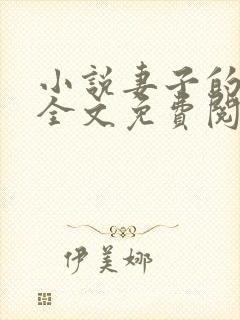 小説妻子的
全文免費閱
伊美娜